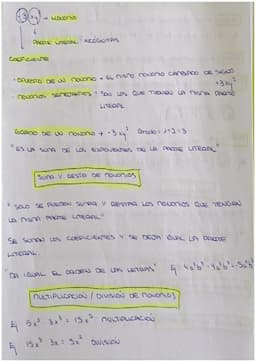 -3xy² → MONOMIO
PARTE LITERAL: INCÓGNITAS
COEFICIENTE
- OPUESTO DE UN MONOMIO → EL MISMO MONOMIO CAMBIADO DE SIGNO
+3xy²
- MONOMIOS SEMEJANTES: SON LOS QUE TIENEN LA MISMA PARTE
LITERAL
GRADO DE UN MONOMIO → -3xy² GRADO = 1+2=3
"ES LA SUMA DE LOS EXPONENTES DE LA PARTE LITERAL"
SUMA Y RESTA DE MONOMIOS
"SOLO SE PUEDEN SUMAR Y RESTAR LOS MONOMIOS QUE TENGAN
LA MISMA PARTE LITERAL"
SE SUMAN LOS COEFICIENTES Y SE DEJA IGUAL LA PARTE
LITERAL.
"DA IGUAL EL ORDEN DE LAS LETRAS"
MULTIPLICACIÓN / DIVISIÓN DE MONOMIOS
Ej 5x² 3x³ = 15x⁵ MULTIPLICACIÓN
Ej 15x³ 3x = 5x² DIVISIÓN